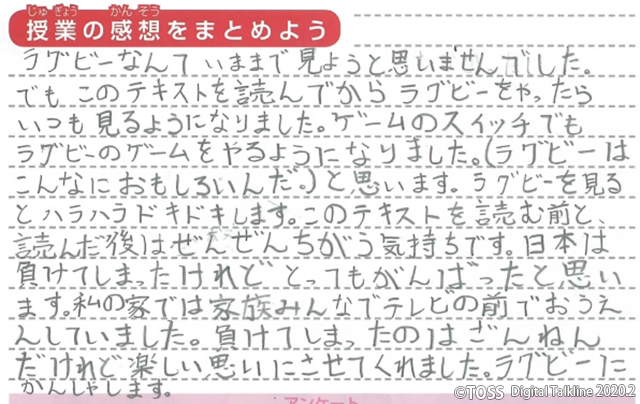 じゅ ぎょう かん そう
授業の感想をまとめよう
ラグビーなんていままで見ようと思いませんでした。
でもこのテキストを読んでからラグビーをやったら
いつも見るようになりました。ゲームのスイッチでも
ラグビーのゲームをやるようになりました。(ラグビーは
こんなにおもしろいんだ。)と思います。ラグビーを見る
とハラハラドキドキします。このテキストを読む前と、
読んだ後はぜんぜんちがう気持ちです。日本は
負けてしまったけれどとってもがんばったと思い
ます。私の家では家族みんなでテレビの前でおうえ
んしていました。負けてしまったのはざんねん
だけれど楽しい思いにさせてくれました。ラグビーに
かんしゃします。
アンケート
©TOSS Digital Talkline 2020.2